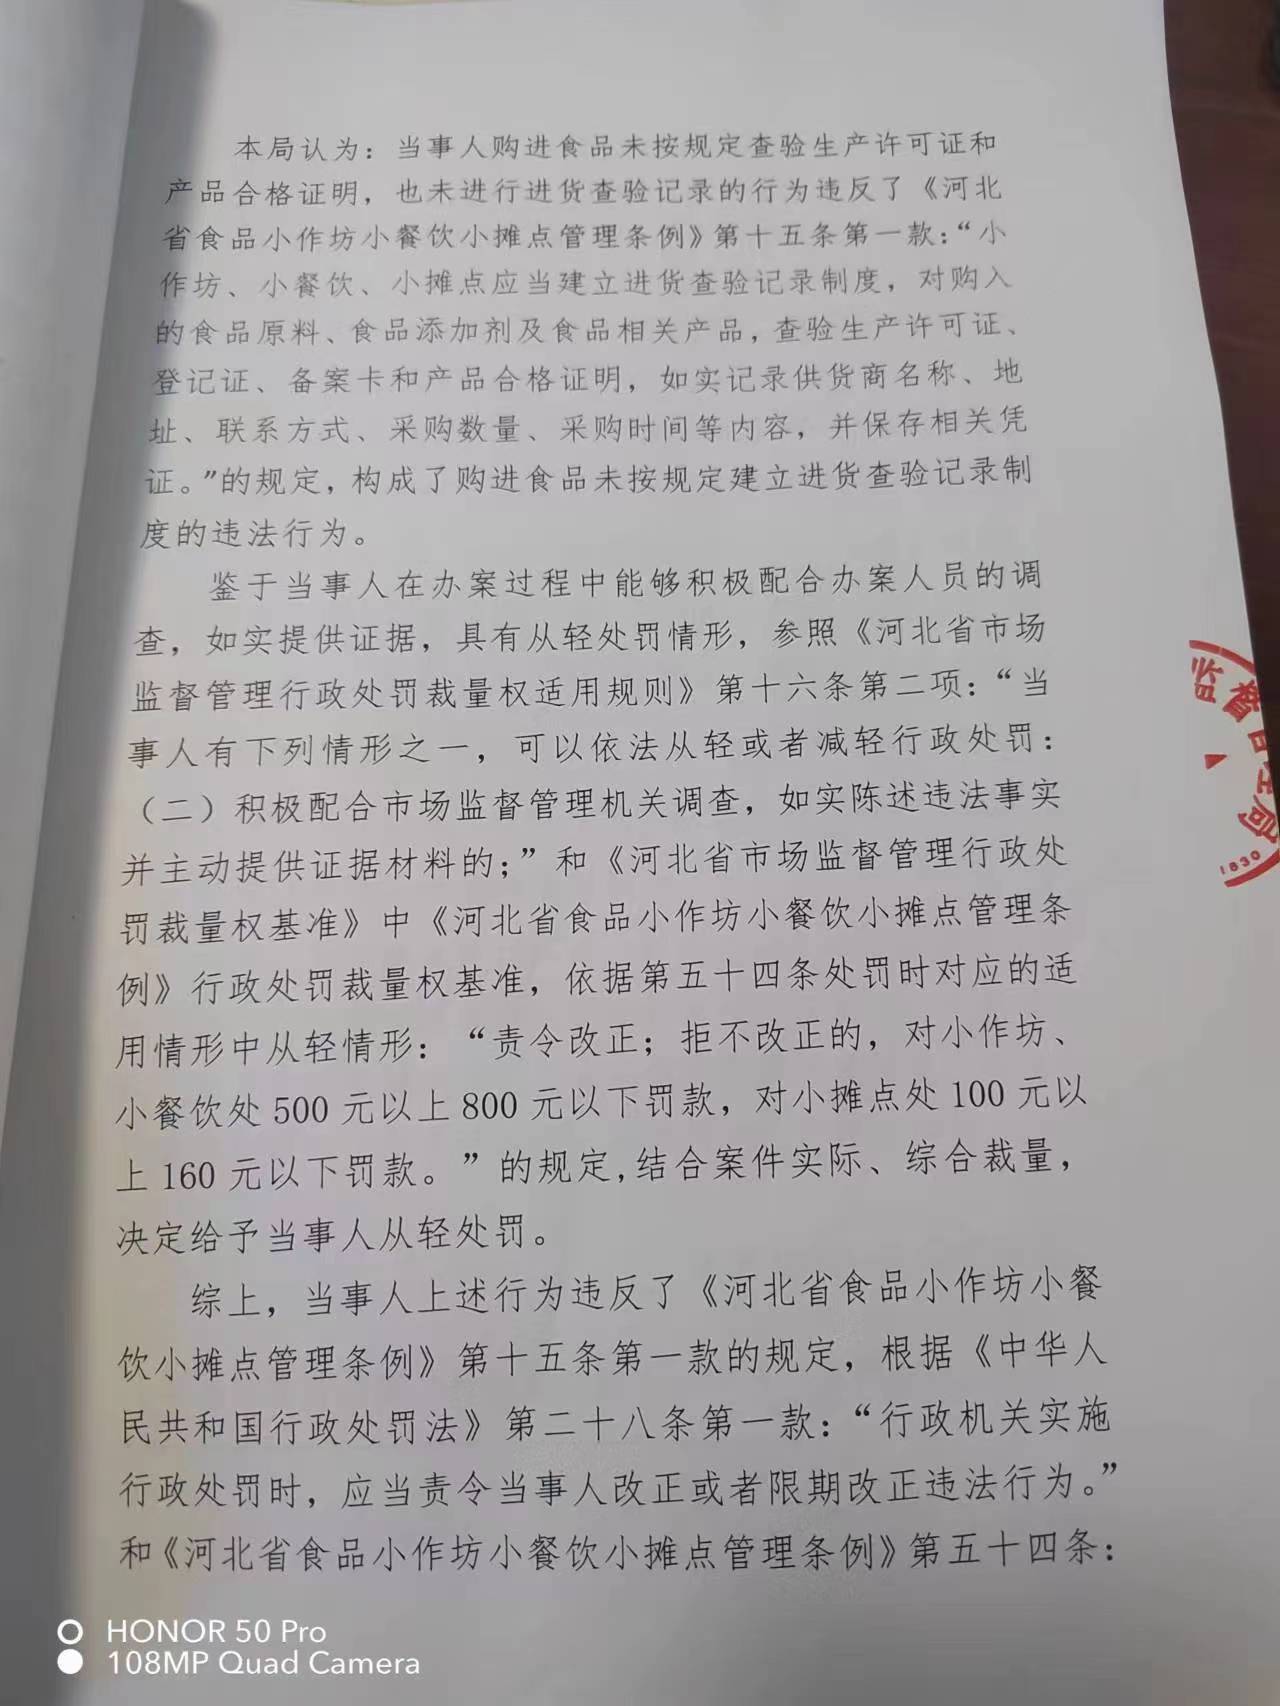 本局认为：当事人购进食品未按规定查验生产许可证和
产品合格证明，也未进行进货查验记录的行为违反了《河北
省食品小作坊小餐饮小摊点管理条例》第十五条第一款：“小
作坊、小餐饮、小摊点应当建立进货查验记录制度，对购入
的食品原料、食品添加剂及食品相关产品，查验生产许可证、
登记证、备案卡和产品合格证明，如实记录供货商名称、地
址、联系方式、采购数量、采购时间等内容，并保存相关凭
证。”的规定，构成了购进食品未按规定建立进货查验记录制
度的违法行为。
鉴于当事人在办案过程中能够积极配合办案人员的调
查，如实提供证据，具有从轻处罚情形，参照《河北省市场
监督管理行政处罚裁量权适用规则》第十六条第二项：“当
事人有下列情形之一，可以依法从轻或者减轻行政处罚：
（二）积极配合市场监督管理机关调查，如实陈述违法事实
并主动提供证据材料的；”和《河北省市场监督管理行政处
罚裁量权基准》中《河北省食品小作坊小餐饮小摊点管理条
例》行政处罚裁量权基准，依据第五十四条处罚时对应的适
用情形中从轻情形：“责令改正；拒不改正的，对小作坊、
小餐饮处500元以上800元以下罚款，对小摊点处100元以
上160元以下罚款。”的规定,结合案件实际、综合裁量，
决定给予当事人从轻处罚。
综上，当事人上述行为违反了《河北省食品小作坊小餐
饮小摊点管理条例》第十五条第一款的规定，根据《中华人
民共和国行政处罚法》第二十八条第一款：“行政机关实施
行政处罚时，应当责令当事人改正或者限期改正违法行为。”
和《河北省食品小作坊小餐饮小摊点管理条例》第五十四条：
监督管理局
1830
HONOR 50 Pro
108MP Quad Camera